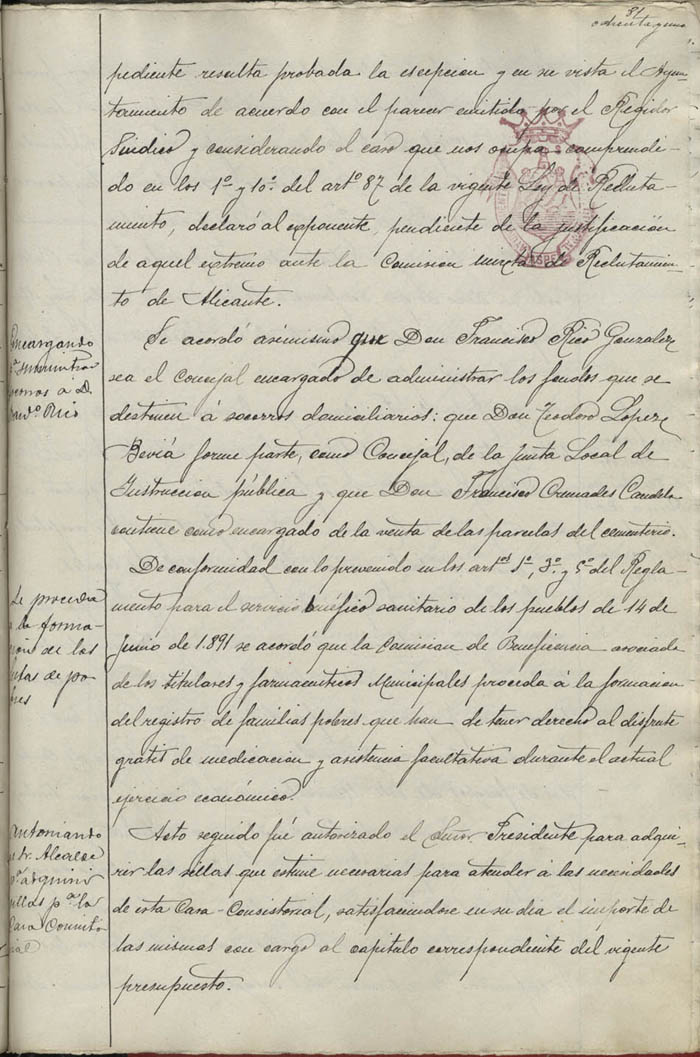 81
ochenta y uno
pediente resulta probada la escepcion y en su vista el Ayun-
tamiento de acuerdo con el parecer emitido por el Regidor
Síndico y considerando el caso que nos ocupa comprendi-
do en los 1º y 10º del artº 87 de la vigente Ley de Recluta-
miento, declaró al esponente, pendiente de la justificación
de aquel extremo ante la Comision mixta de Reclutamien-
to de Alicante.
Encargando
suministrar
socorros a D.
Franº Ricó
Se acordó asimismo que Don Francisco Ricó Gonzalez
sea el Concejal encargado de administrar los fondos que se
destinen á socorros domiciliarios: que Don Teodoro Lopez
Beviá forme parte, como Concejal, de la Junta Local de
Instruccion pública y que Don Francisco Cremades Candela
continue como encargado de la venta de las parcelas del cementerio.
Se proceda
a la forma-
ción de las
listas de po-
bres
De conformidad con lo prevenido en los artos 1º, 3º y 5º del Regla-
mento para el servicio benéfico sanitario de los pueblos de 14 de
Junio de 1.891 se acordó que la Comision de Beneficencia asociada
de los titulares y farmaceuticos Municipales proceda á la formacion
del registro de familias pobres que han de tener derecho al disfrute
gratis de medicacion y asistencia facultativa durante el actual
ejercicio económico.
Autoriando
Sr. Alcalde
pª adquirir
sillas pª la
Casa Consisto
rial
Acto seguido fué autorizado el Señor Presidente para adqui-
rir las sillas que estime necesarias para atender á las necesidades
de esta Casa-Consistorial, satisfaciendose en su dia el importe de
las mismas con cargo al capitulo correspondiente del vigente
presupuesto.